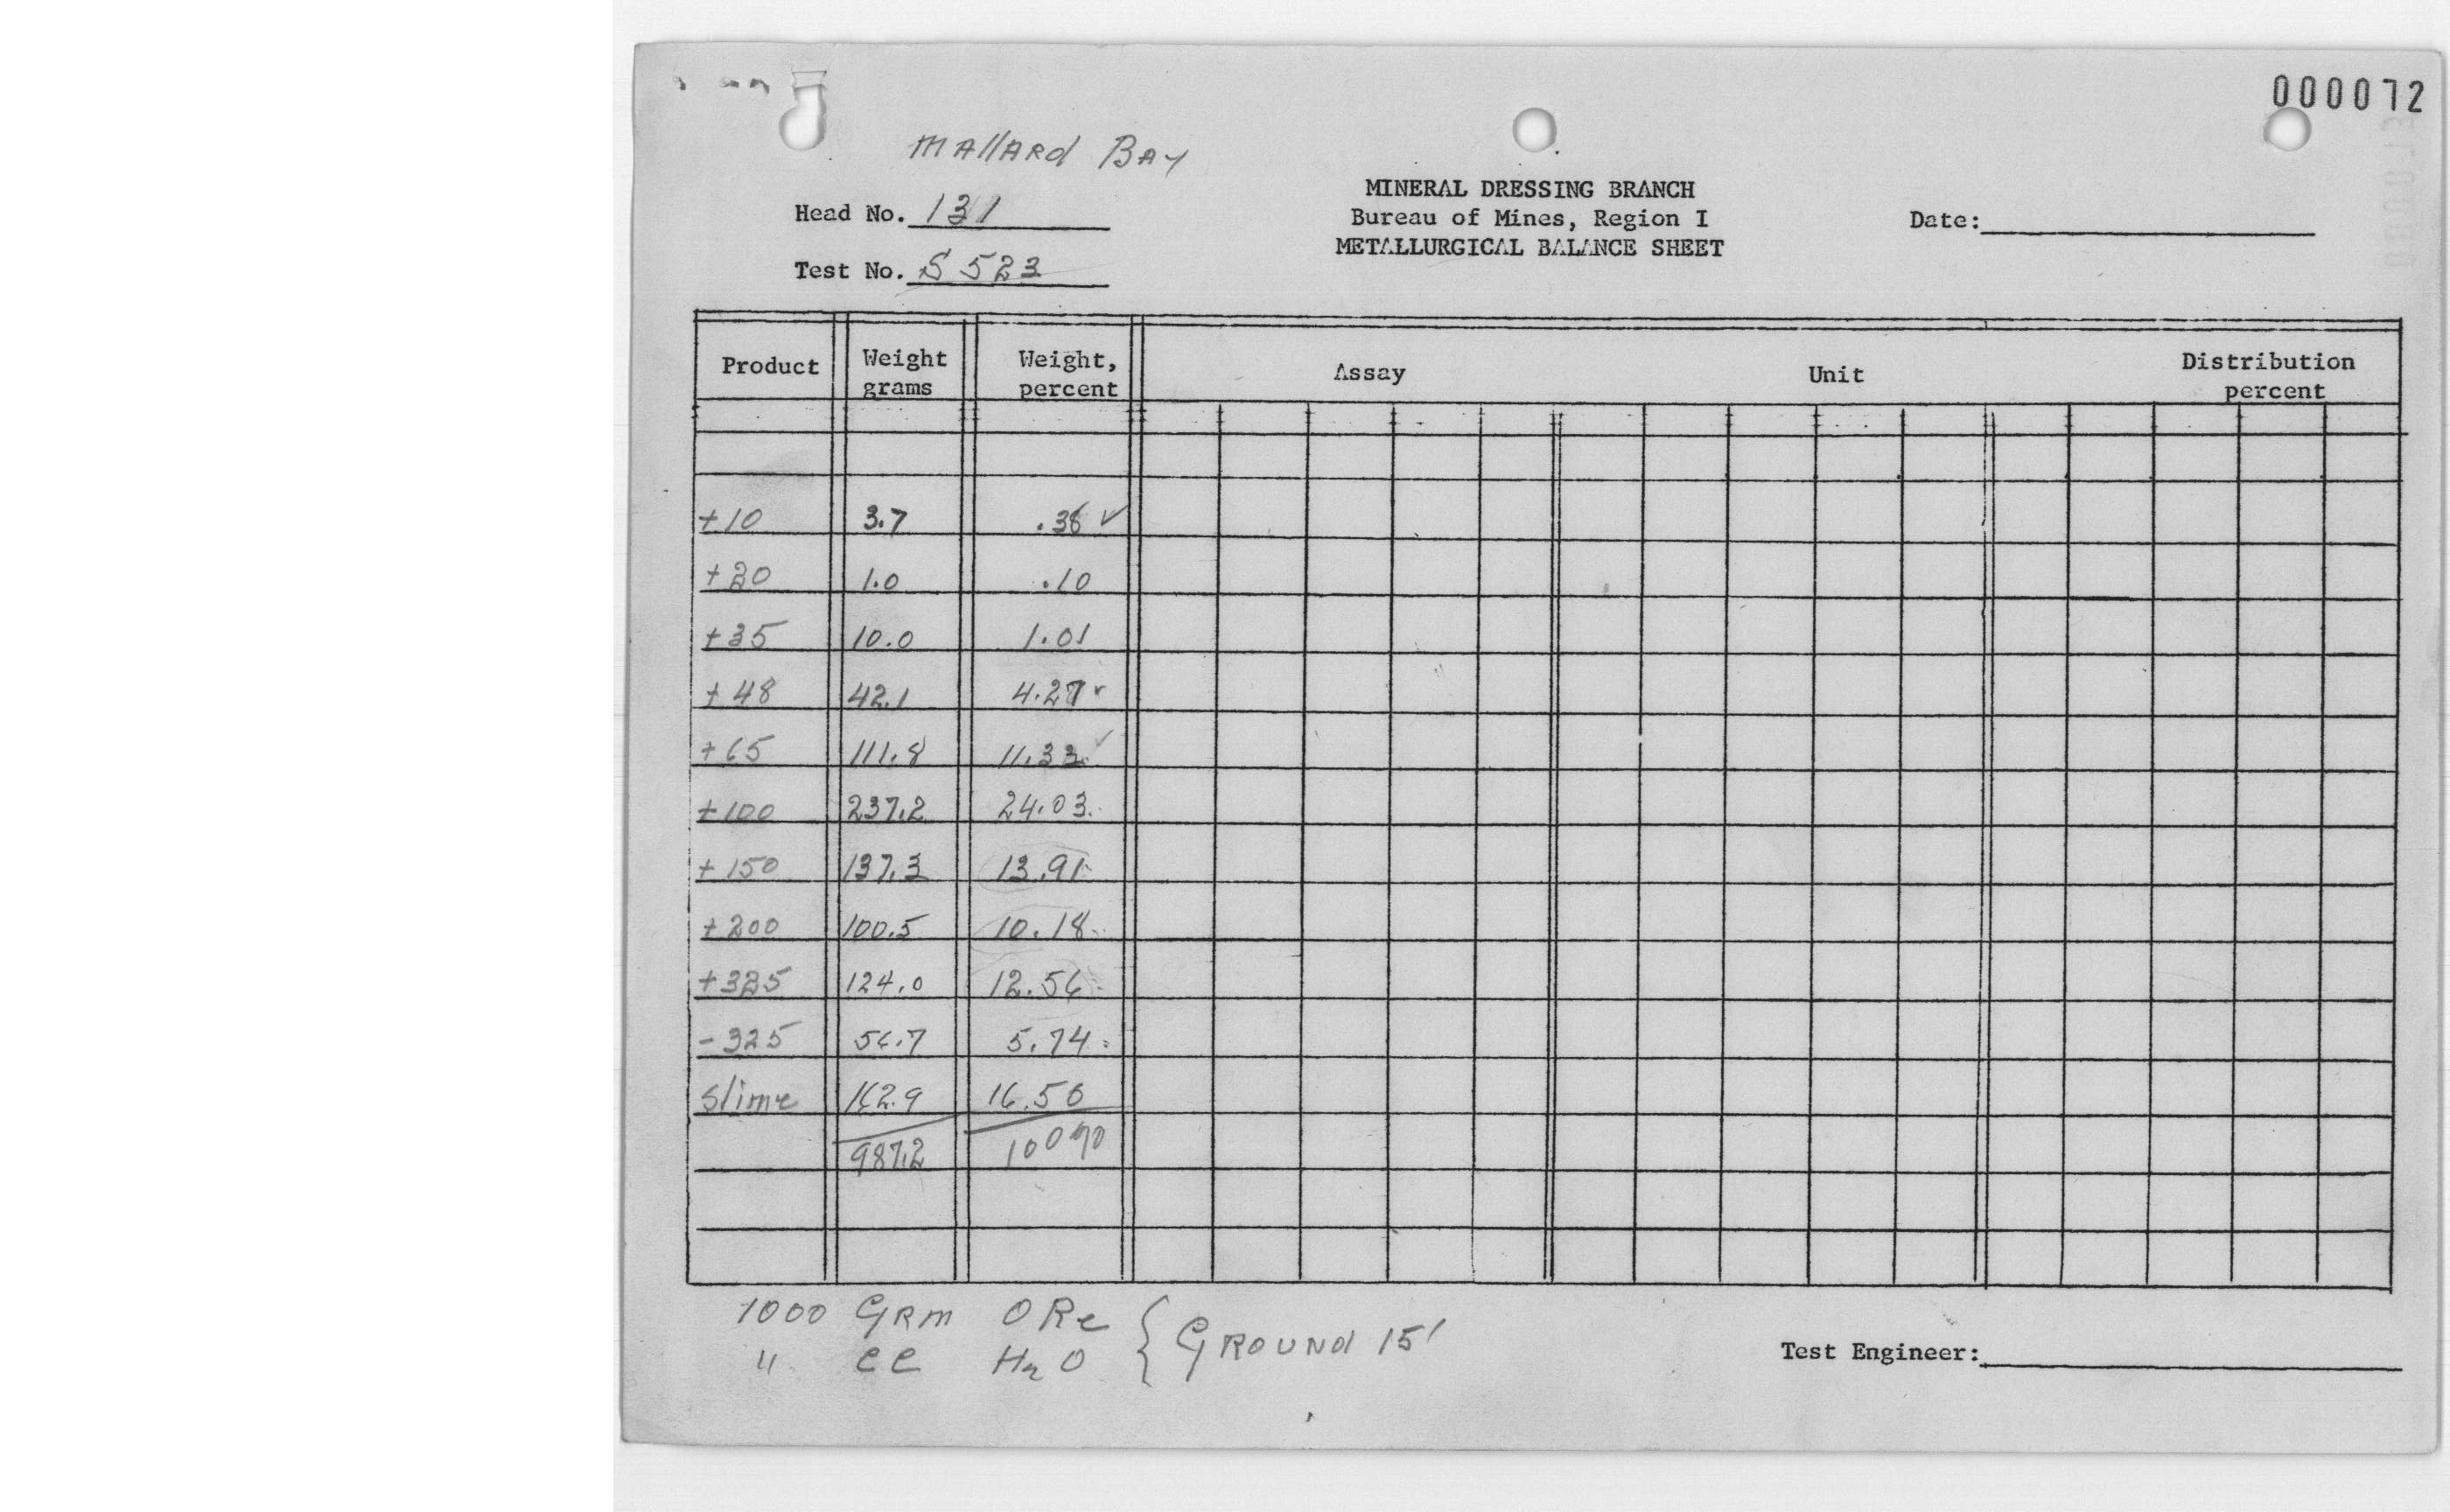 000072
Mallard Bay
MINERAL DRESSING BRANCH
Head No. 131
Bureau of Mines, Region I
Date:
METALLURGICAL BALANCE SHEET
Test No. S 523
Product Weight grams Weight, percent Assay Unit Distribution percent
+10 3.7 .38 ✓
+20 1.0 .10
+35 10.0 1.01
+48 42.1 4.27 ✓
+65 111.8 11.33 ✓
+100 237.2 24.03
+150 137.3 13.91
+200 100.5 10.18
+325 124.0 12.56
-325 56.7 5.74
slime 162.9 16.50
987.2
1000 GRM ORe { GROUND 15'
" CC H2O
Test Engineer: